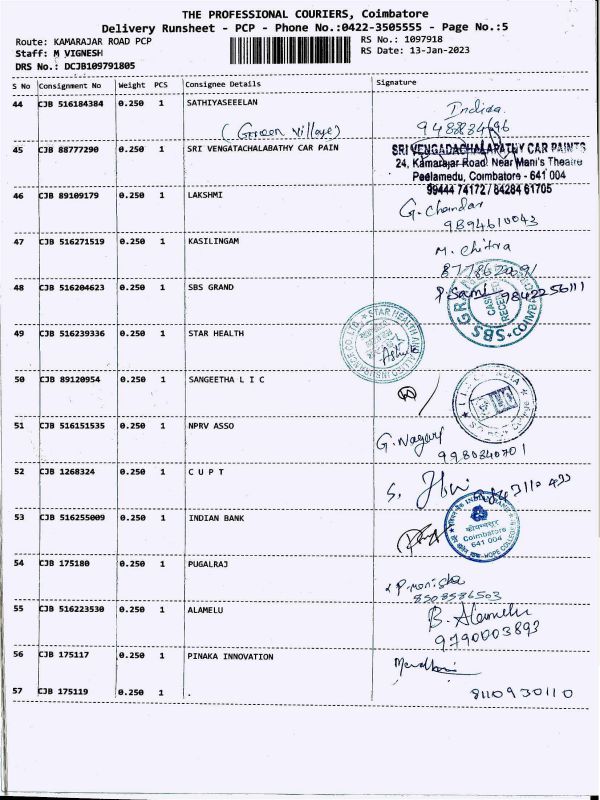 THE PROFESSIONAL COURIERS, Coimbatore
Delivery Runsheet - PCP - Phone No.:0422-3505555 - Page No.:5
Route: KAMARAJAR ROAD PCP
RS No.: 1097918
Staff: M VIGNESH
RS Date: 13-Jan-2023
DRS No.: DCJB109791805
S No Consignment No Weight PCS Consignee Details Signature
44 CJB 516184384 0.250 1 SATHIYASEEELAN
(Green Village)
45 CJB 88777290 0.250 1 SRI VENGATACHALABATHY CAR PAIN
SRI VENGADACHALAPATHY CAR PAINTS
24, Kamarajar Road, Near Mani's Theatre
Peelamedu, Coimbatore - 641 004
99444 74172 / 84284 61705
46 CJB 89109179 0.250 1 LAKSHMI
G. Chandar
9894610043
47 CJB 516271519 0.250 1 KASILINGAM
M. Chitra
48 CJB 516204623 0.250 1 SBS GRAND
P. Sami 9842256111
49 CJB 516239336 0.250 1 STAR HEALTH
50 CJB 89120954 0.250 1 SANGEETHA L I C
51 CJB 516151535 0.250 1 NPRV ASSO
9980340701
52 CJB 1268324 0.250 1 C U P T
53 CJB 516255009 0.250 1 INDIAN BANK
INDIAN BANK
Coimbatore
641 004
HOPE COLLEGE
54 CJB 175180 0.250 1 PUGALRAJ
8508586503
55 CJB 516223530 0.250 1 ALAMELU
B. Alamelu
9790003893
56 CJB 175117 0.250 1 PINAKA INNOVATION
57 CJB 175119 0.250 1 .
8110930110